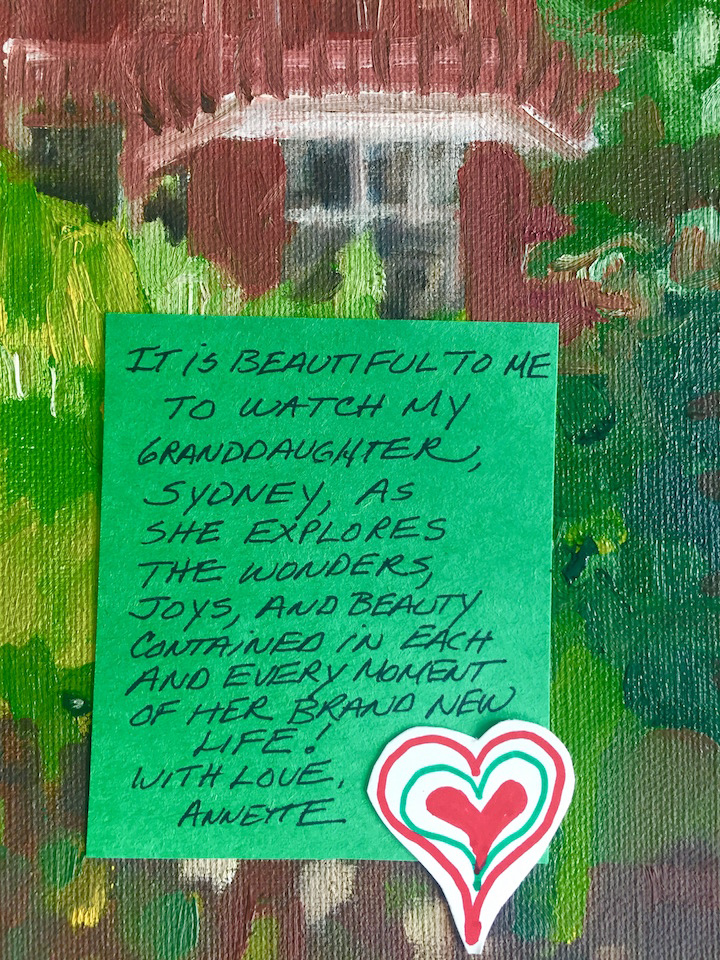 IT iS BEAUTIFUL TO ME
TO WATCH MY
GRANDDAUGHTER,
SYDNEY, AS
SHE EXPLORES
THE WONDERS,
JOYS, AND BEAUTY
CONTAINED iN EACH
AND EVERY MOMENT
OF HER BRAND NEW
LIFE!
WITH LOVE,
ANNETTE